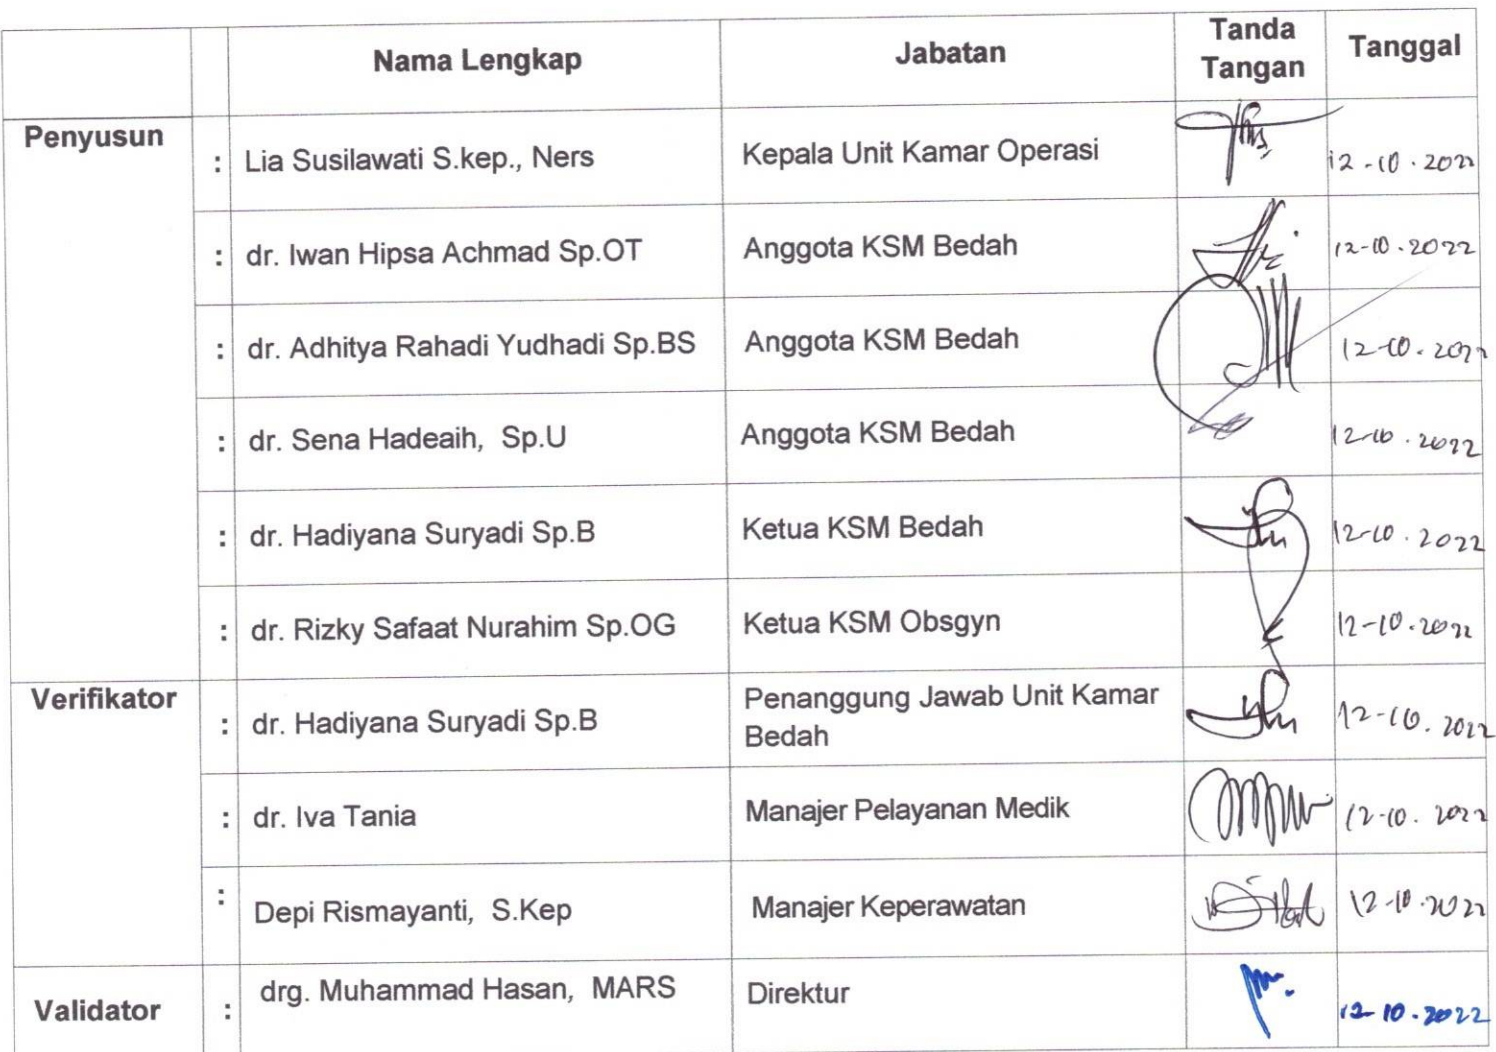 Nama Lengkap Jabatan Tanda Tangan Tanggal
Penyusun : Lia Susilawati S.kep., Ners Kepala Unit Kamar Operasi 12-10.2022
: dr. Iwan Hipsa Achmad Sp.OT Anggota KSM Bedah 12-10.2022
: dr. Adhitya Rahadi Yudhadi Sp.BS Anggota KSM Bedah 12-10.2022
: dr. Sena Hadeaih, Sp.U Anggota KSM Bedah 12-10.2022
: dr. Hadiyana Suryadi Sp.B Ketua KSM Bedah 12-10.2022
: dr. Rizky Safaat Nurahim Sp.OG Ketua KSM Obsgyn 12-10.2022
Verifikator : dr. Hadiyana Suryadi Sp.B Penanggung Jawab Unit Kamar Bedah 12-10.2022
: dr. Iva Tania Manajer Pelayanan Medik 12-10.2022
: Depi Rismayanti, S.Kep Manajer Keperawatan 12-10.2022
Validator : drg. Muhammad Hasan, MARS Direktur 12-10.2022